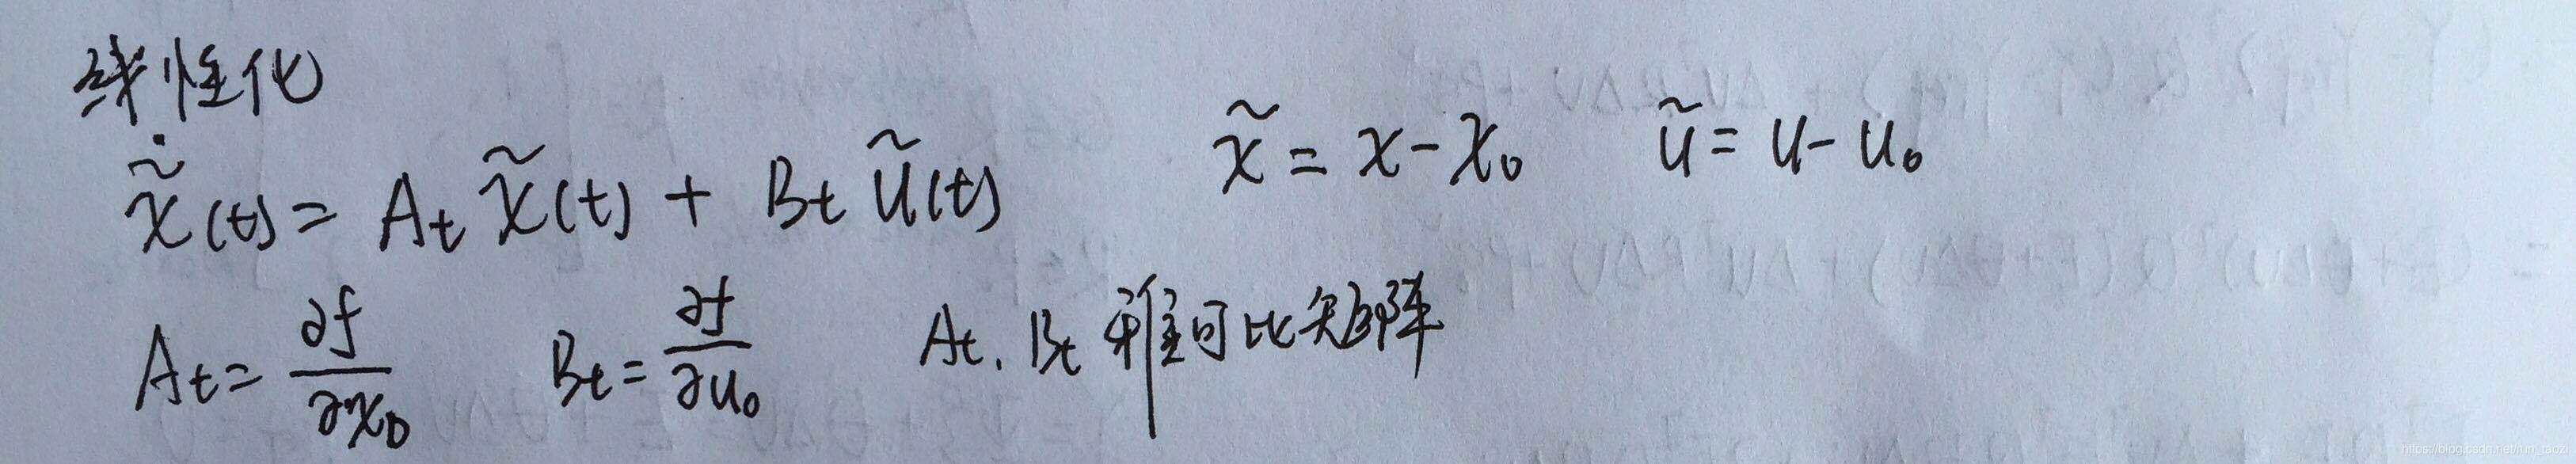 线性化
$\dot{\tilde{x}}(t) = A_t \tilde{x}(t) + B_t \tilde{u}(t)$ $\tilde{x} = x - x_0$ $\tilde{u} = u - u_0$
$A_t = \frac{\partial f}{\partial x_0}$ $B_t = \frac{\partial f}{\partial u_0}$ $A_t, B_t$ 雅可比矩阵